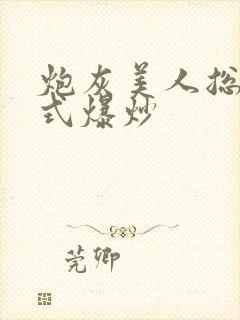 炮灰美人总
式爆炒
莞卿